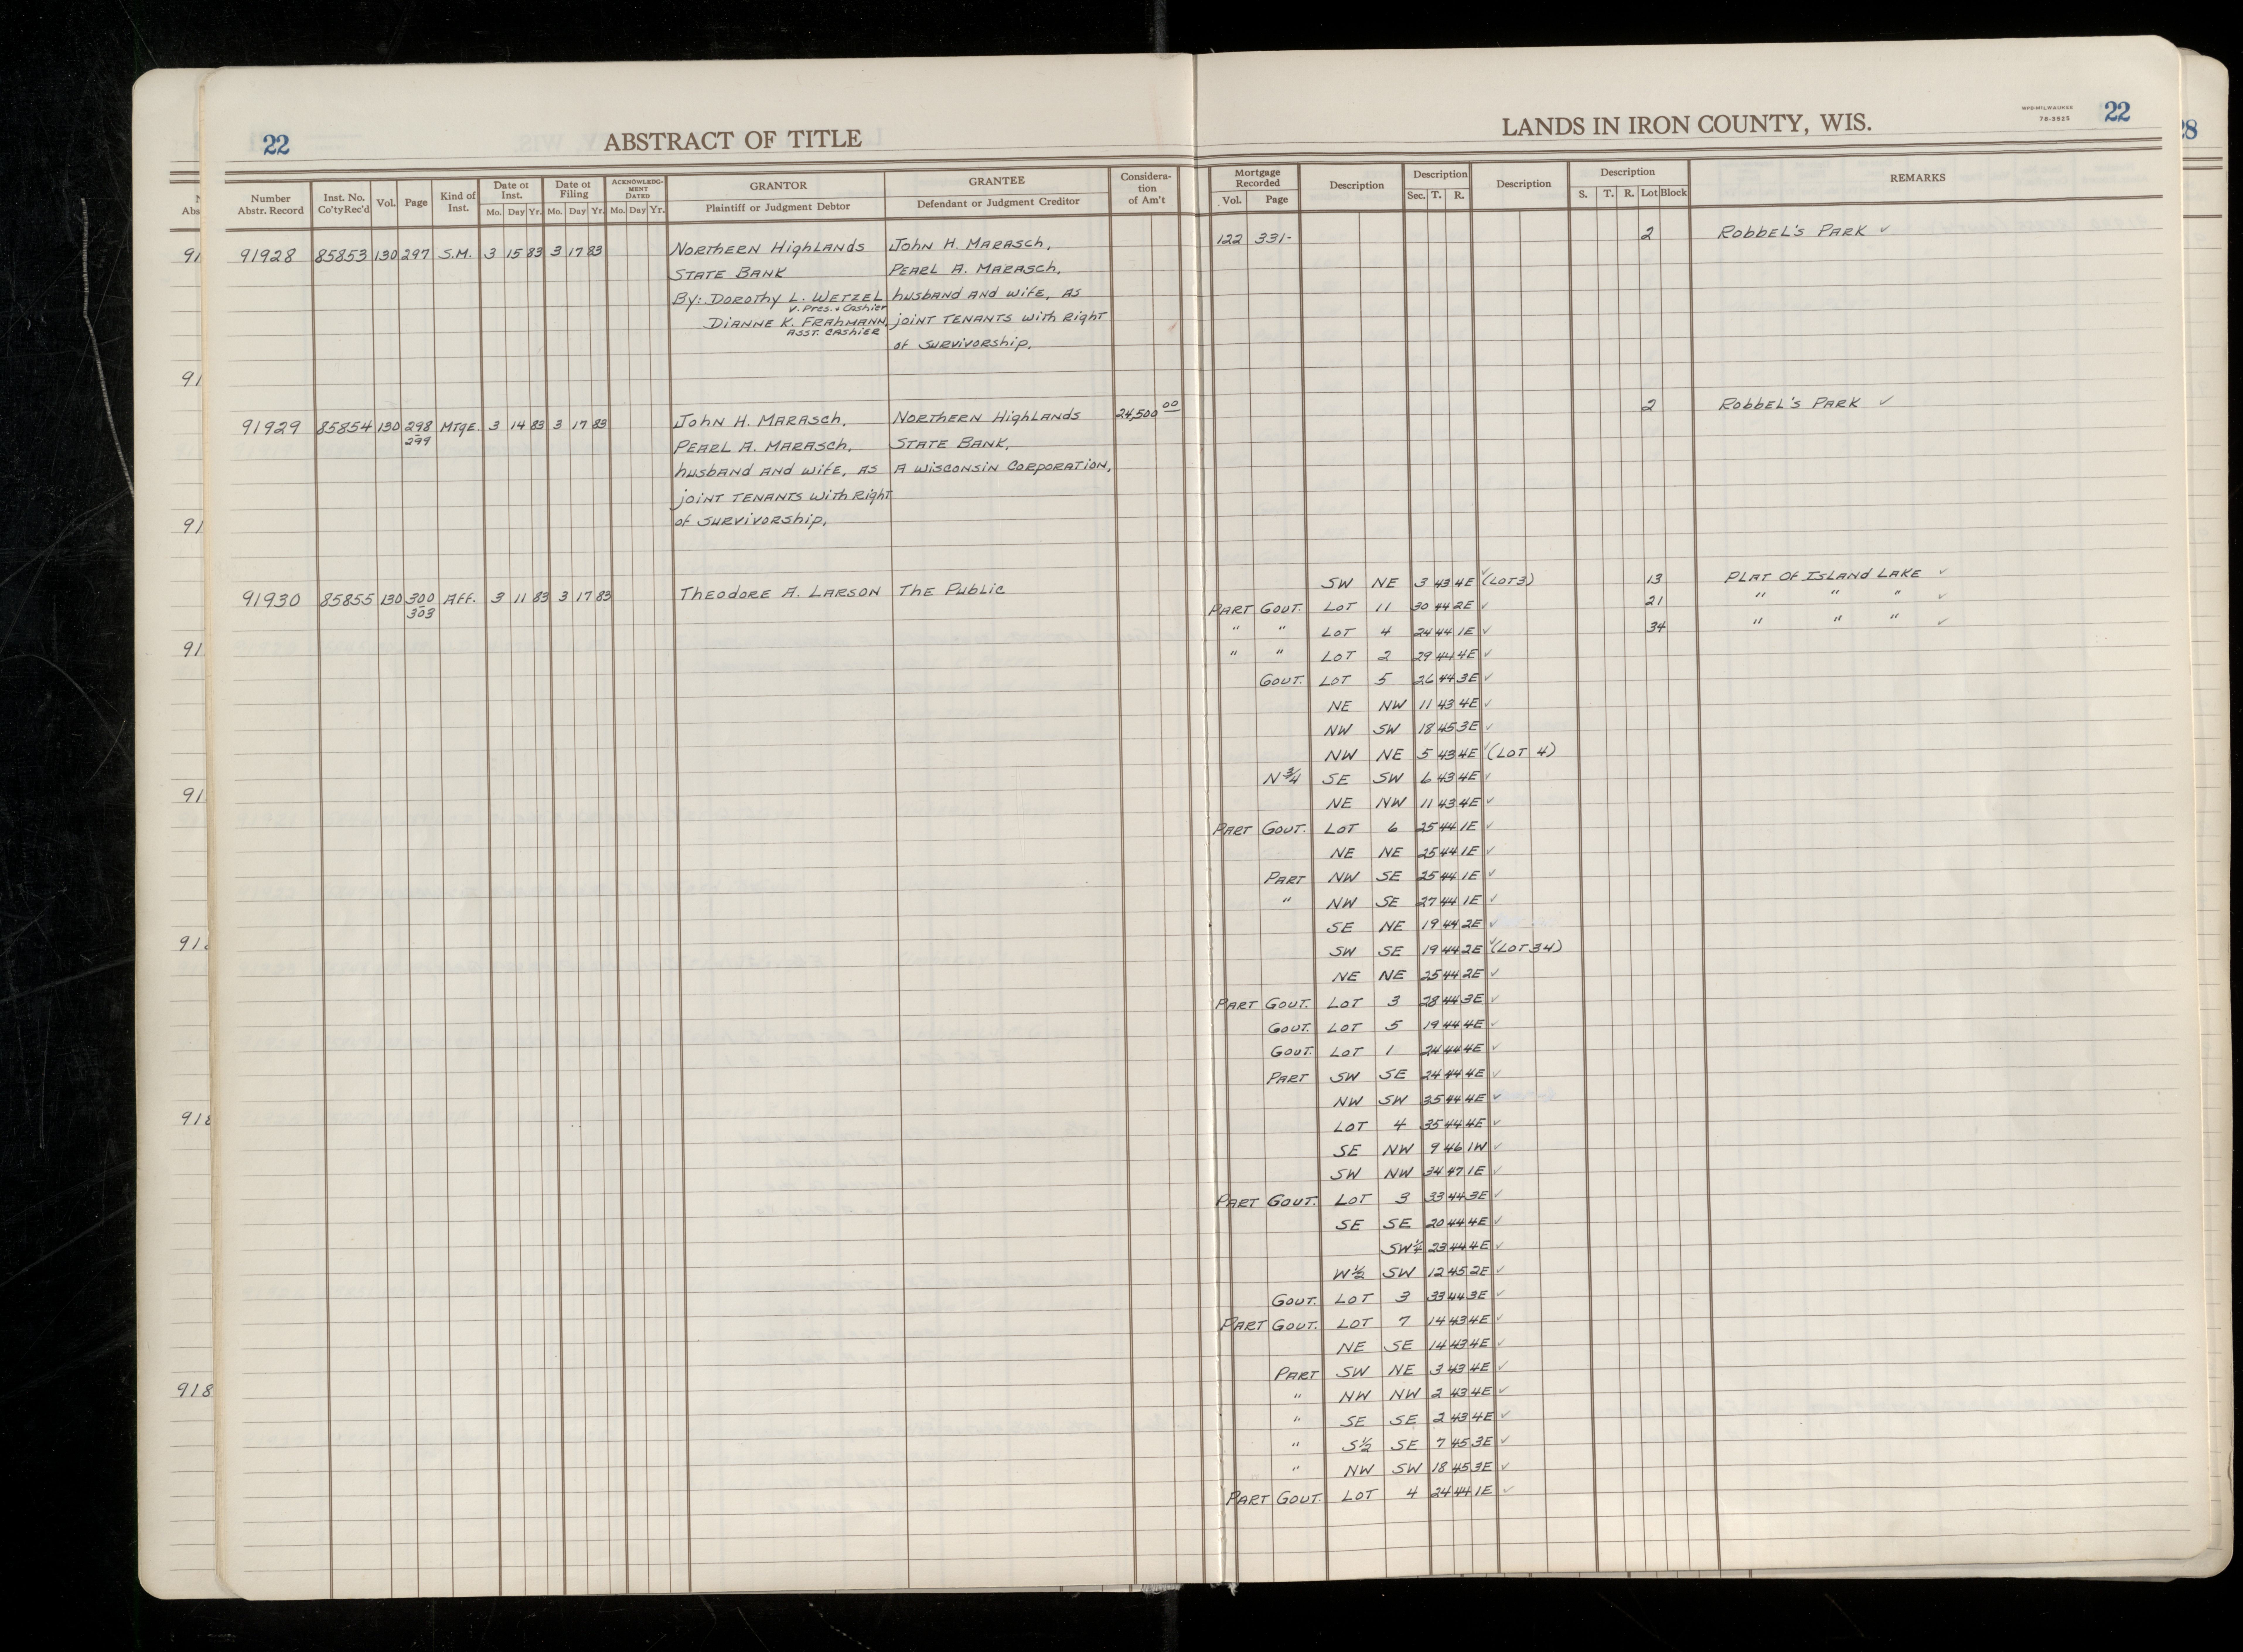 22 ABSTRACT OF TITLE
LANDS IN IRON COUNTY, WIS. WPB-MILWAUKEE 76-3525 22
28
Number Abstr. Record Inst. No. Co'tyRec'd Vol. Page Kind of Inst. Date of Inst. Mo. Day Yr. Date of Filing Mo. Day Yr. ACKNOWLEDGMENT DATED Mo. Day Yr. GRANTOR Plaintiff or Judgment Debtor GRANTEE Defendant or Judgment Creditor Consideration of Am't
Mortgage Recorded Vol. Page Description Description Sec. T. R. Description Description S. T. R. Lot Block REMARKS
91928 85853 130 297 S.M. 3 15 83 3 17 83 Northern Highlands John H. Marasch,
State Bank Pearl A. Marasch,
By: Dorothy L. Wetzel husband and wife, as
V. Pres. & Cashier
Dianne K. Frahmann, joint tenants with right
Asst. Cashier
of survivorship,
122 331- 2 Robbel's Park ✓
91929 85854 130 298 Mtge. 3 14 83 3 17 83 John H. Marasch, Northern Highlands 24,500 00
299
Pearl A. Marasch, State Bank,
husband and wife, as A Wisconsin Corporation,
joint tenants with right
of survivorship,
2 Robbel's Park ✓
91930 85855 130 300 Aff. 3 11 83 3 17 83 Theodore A. Larson The Public
303
SW NE 3 43 4E ✓ (Lot 3) 13 Plat of Island Lake ✓
Part Gout. Lot 11 30 44 2E ✓ 21 " " " ✓
" " Lot 4 24 44 1E ✓ 34 " " " ✓
" " Lot 2 29 44 4E ✓
Gout. Lot 5 26 44 3E ✓
NE NW 11 43 4E ✓
NW SW 18 45 3E ✓
NW NE 5 43 4E ✓ (Lot 4)
N 3/4 SE SW 6 43 4E ✓
NE NW 11 43 4E ✓
Part Gout. Lot 6 25 44 1E ✓
NE NE 25 44 1E ✓
Part NW SE 25 44 1E ✓
" NW SE 27 44 1E ✓
SE NE 19 44 2E ✓
SW SE 19 44 2E ✓ (Lot 34)
NE NE 25 44 2E ✓
Part Gout. Lot 3 28 44 3E ✓
Gout. Lot 5 19 44 4E ✓
Gout. Lot 1 24 44 4E ✓
Part SW SE 24 44 4E ✓
NW SW 35 44 4E ✓
Lot 4 35 44 4E ✓
SE NW 9 46 1W ✓
SW NW 34 47 1E ✓
Part Gout. Lot 3 33 44 3E ✓
SE SE 20 44 4E ✓
SW 1/4 23 44 4E ✓
W 1/2 SW 12 45 2E ✓
Gout. Lot 3 33 44 3E ✓
Part Gout. Lot 7 14 43 4E ✓
NE SE 14 43 4E ✓
Part SW NE 3 43 4E ✓
" NW NW 2 43 4E ✓
" SE SE 2 43 4E ✓
" S 1/2 SE 7 45 3E ✓
" NW SW 18 45 3E ✓
Part Gout. Lot 4 24 44 1E ✓